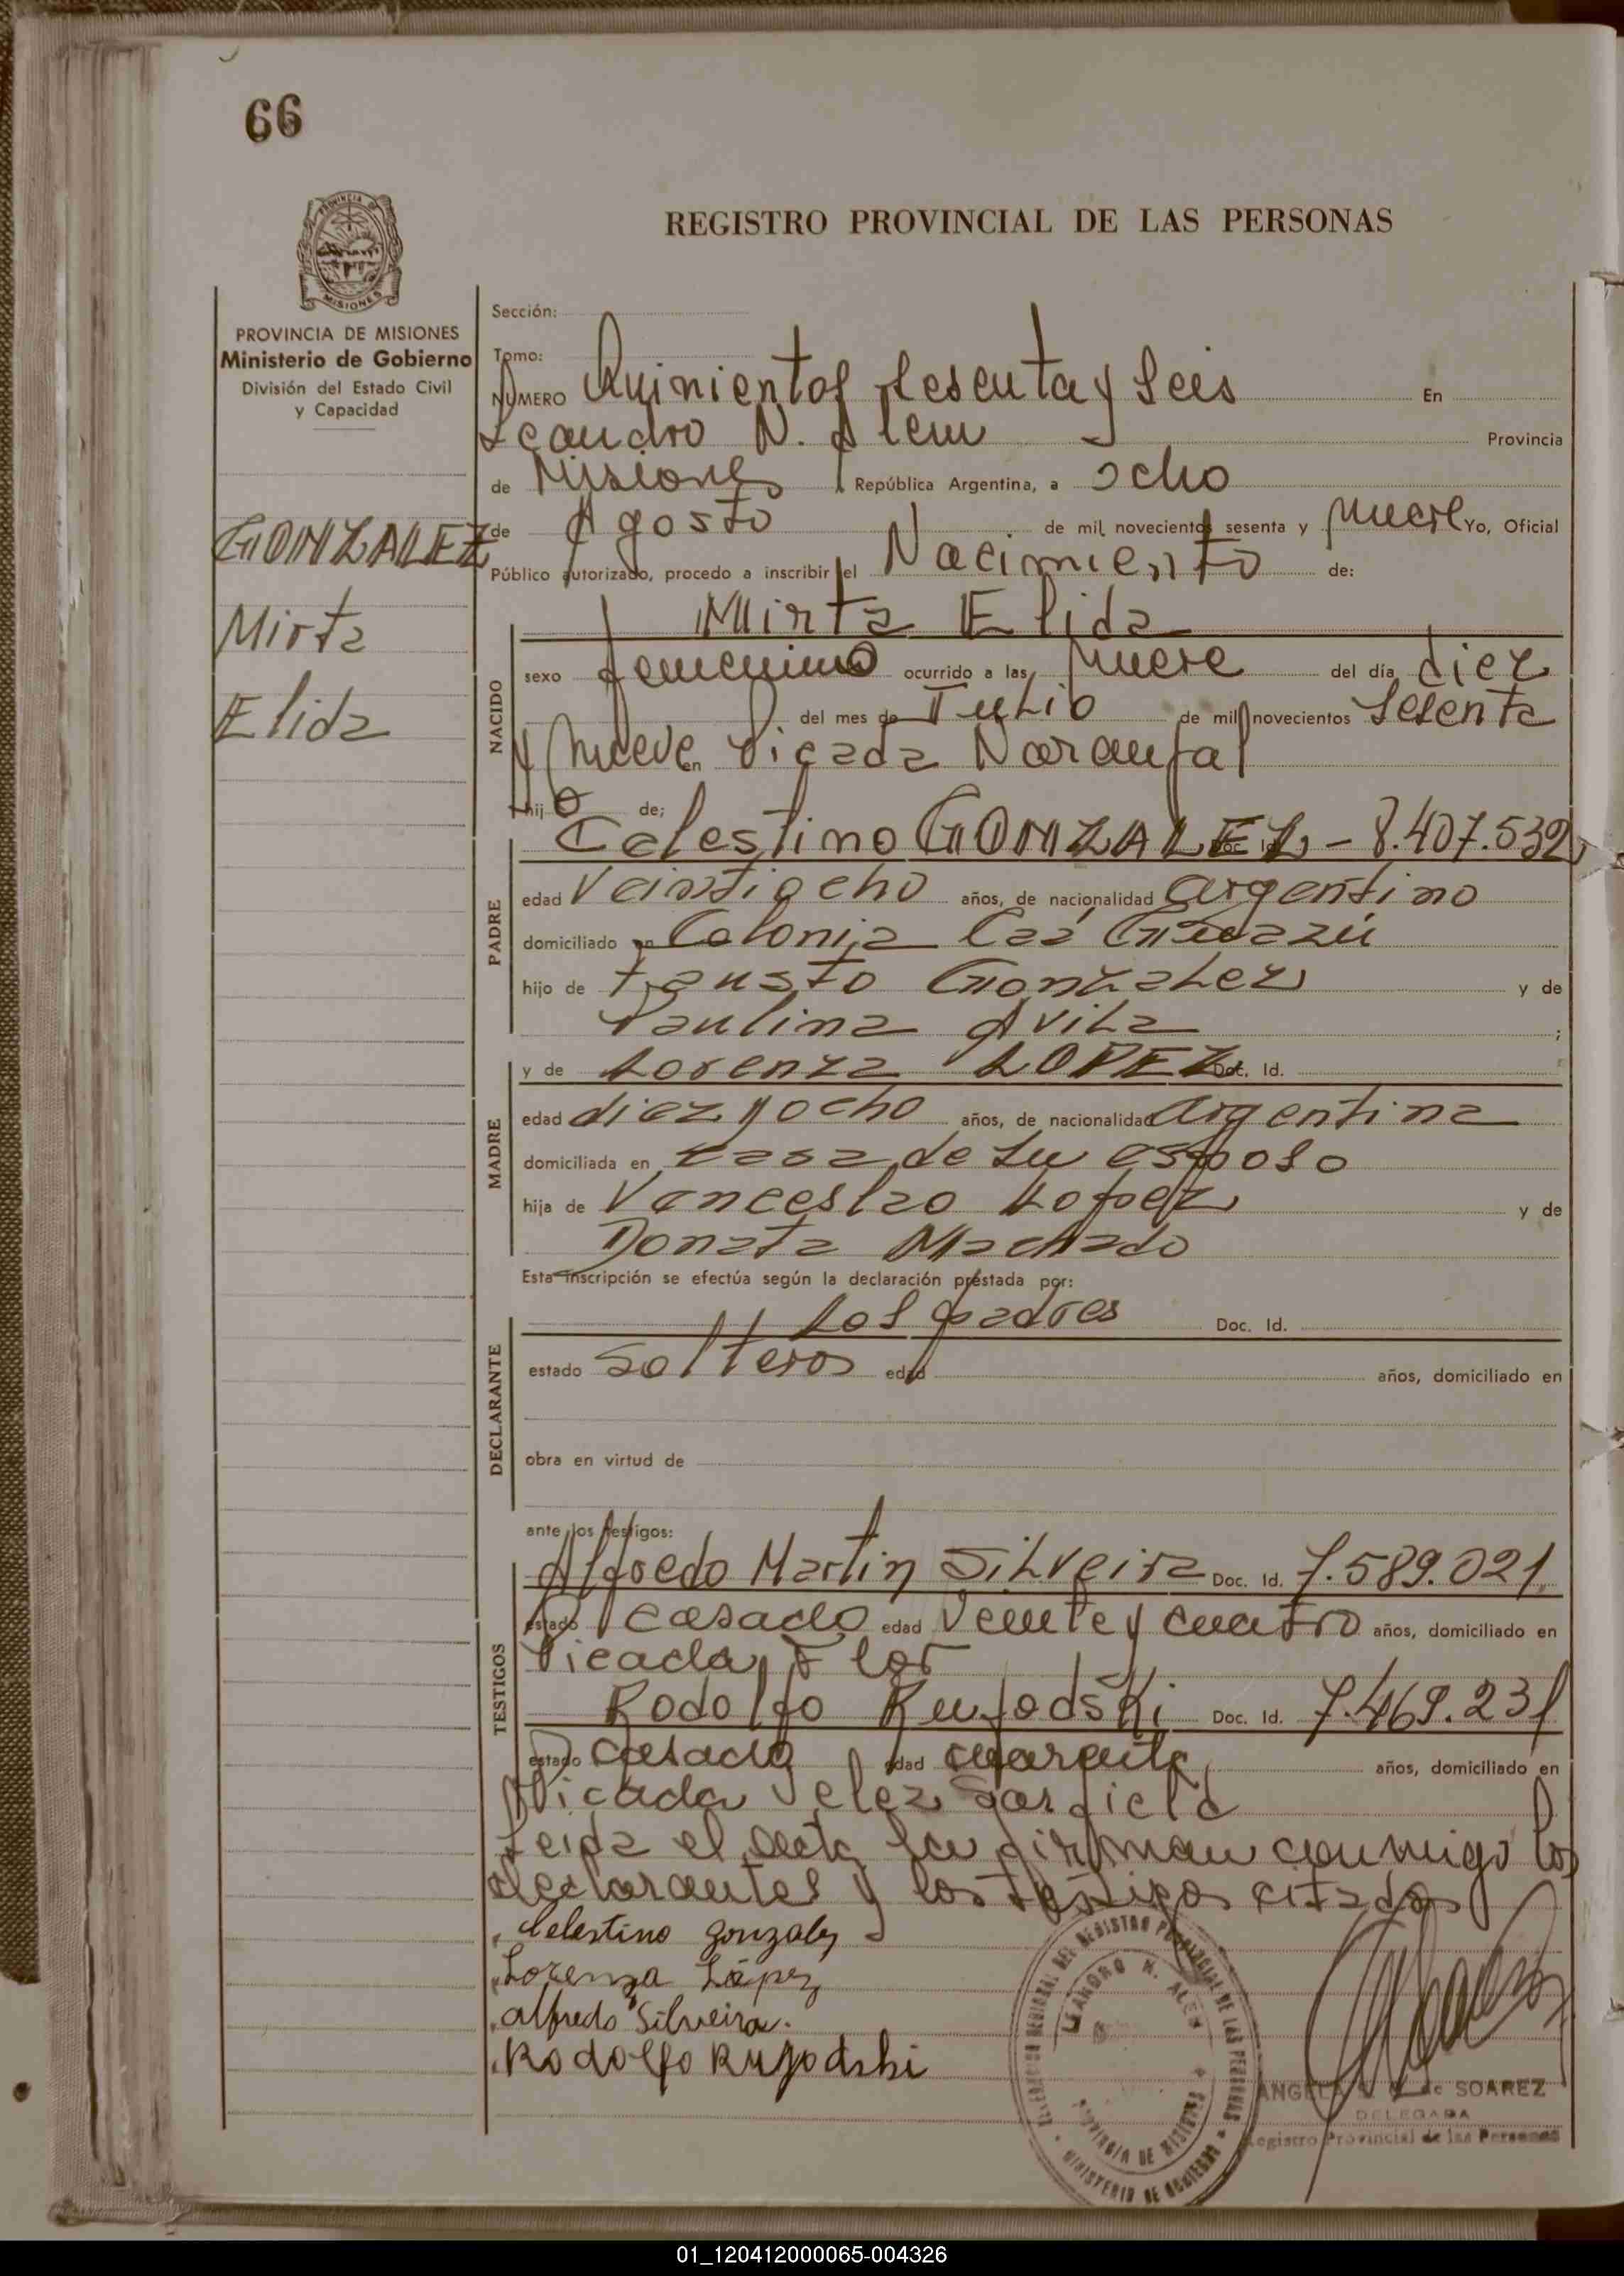 66
REGISTRO PROVINCIAL DE LAS PERSONAS
MISIONES
PROVINCIA DE MISIONES
Ministerio de Gobierno
División del Estado Civil
y Capacidad
GONZALEZ
Mirta
Elida
Sección:
Tomo:
NUMERO Quinientos sesenta y seis En
Leandro N. Alem Provincia
de Misiones República Argentina, a ocho
de Agosto de mil novecientos sesenta y nueve Yo, Oficial
Público autorizado, procedo a inscribir el Nacimiento de:
Mirta Elida
NACIDO
sexo femenino ocurrido a las nueve del día diez
del mes de Julio de mil novecientos sesenta
y nueve en Picada Naranjal
hijo de;
PADRE
Celestino GONZALEZ - Doc. Id. 8.407.532
edad Veintiocho años, de nacionalidad argentino
domiciliado en Colonia Caá Guazú
hijo de Fausto Gonzalez y de
Paulina Avila ;
MADRE
y de Lorenza LOPEZ Doc. Id.
edad diez y ocho años, de nacionalidad argentina
domiciliada en casa de su esposo
hija de Vanceslao Lopez y de
Donata Machado
Esta inscripción se efectúa según la declaración prestada por:
DECLARANTE
Los padres Doc. Id.
estado solteros edad años, domiciliado en
obra en virtud de
ante los testigos:
TESTIGOS
Alfredo Martin Silveira Doc. Id. 7.589.021
estado casado edad veinte y cuatro años, domiciliado en
Picada Flor
Rodolfo Rujodski Doc. Id. 7.469.231
estado casado edad cuarenta años, domiciliado en
Picada Velez Sarfield
Leida el acta la firman conmigo los
declarantes y los testigos citados
Celestino gonzalez
Lorenza López
alfredo Silveira.
Rodolfo Rujodski
LEANDRO N. ALEM
PROVINCIA DE MISIONES
MINISTERIO DE GOBIERNO
ANGELA de SOAREZ
DELEGADA
Registro Provincial de las Personas
01_120412000065-004326